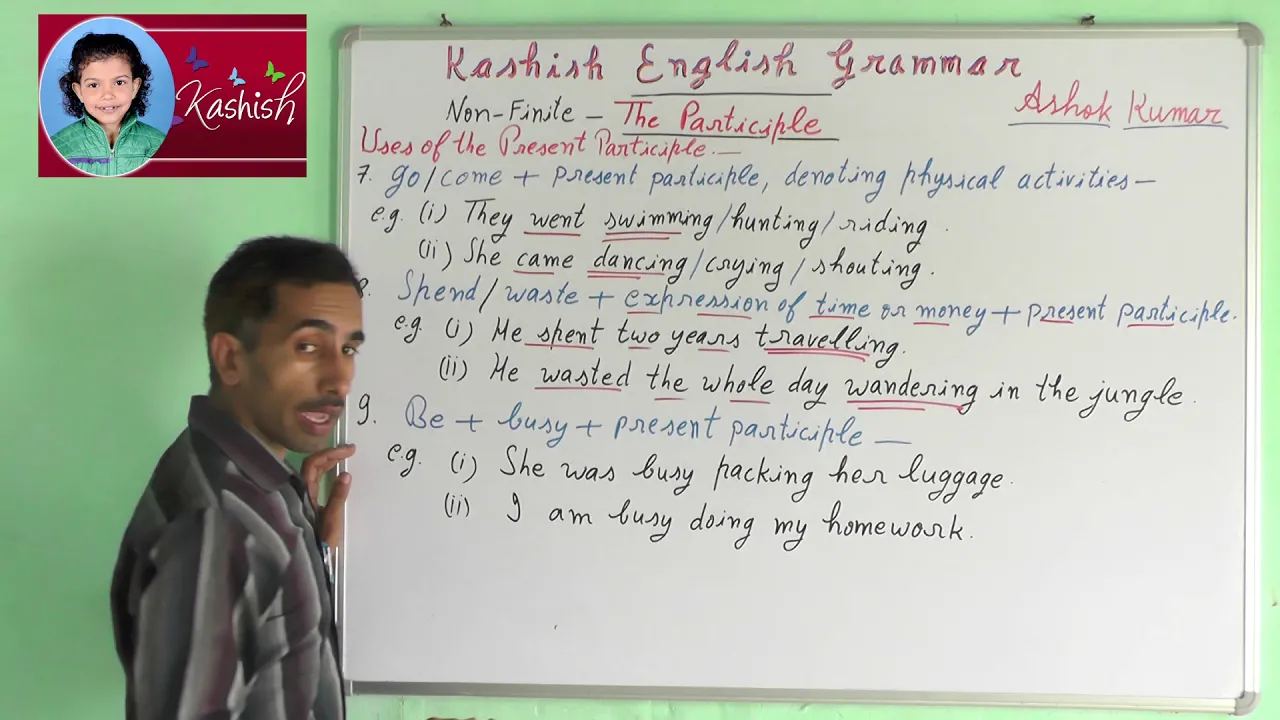 Kashish
Kashish English Grammar
Non-Finite - The Participle
Ashok Kumar
Uses of the Present Participle.—
7. go/come + present participle, denoting physical activities—
e.g. (i) They went swimming/hunting/riding.
(ii) She came dancing/crying/shouting.
8. Spend/waste + expression of time or money + present participle.
e.g (i) He spent two years travelling.
(ii) He wasted the whole day wandering in the jungle.
9. Be + busy + present participle —
e.g. (i) She was busy packing her luggage.
(ii) I am busy doing my homework.